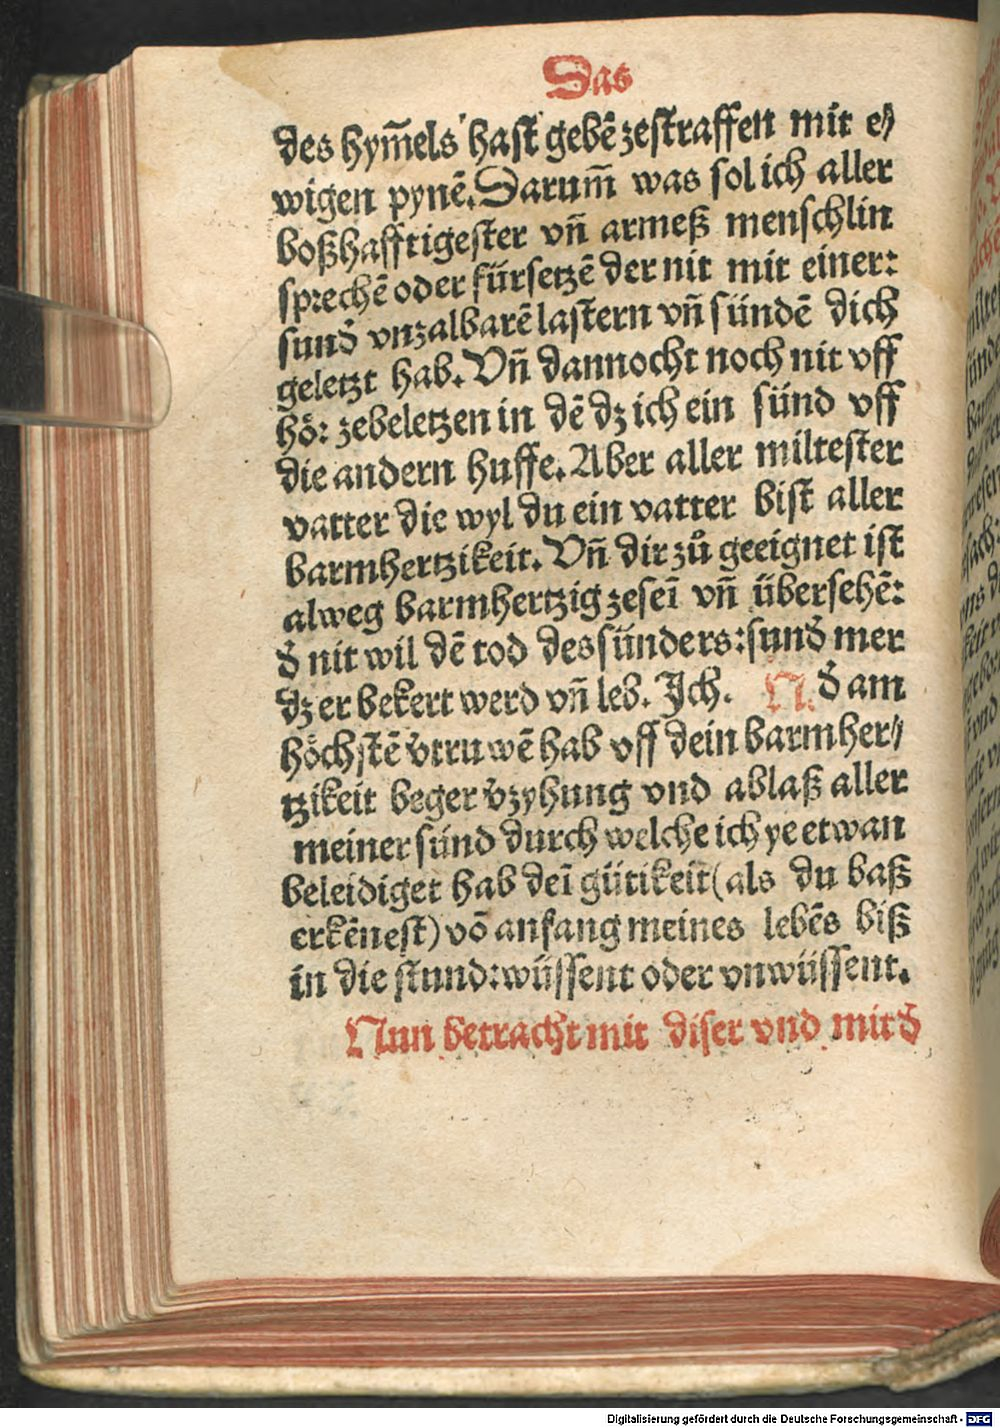 Das
des hym̄els hast gebē zestraffen mit e⸗
wigen pynē. Darum̄ was sol ich aller
boßhafftigester vn̄ armeß menschlin
sprechē oder fürsetzē der nit mit einer:
sund̄ vnzalbarē lastern vn̄ sündē dich
geletzt hab. Vn̄ dannocht noch nit vff
hör zebeletzen in dē dz ich ein sünd vff
die andern huffe. Aber aller miltester
vatter die wyl du ein vatter bist aller
barmhertzikeit. Vn̄ dir zů geeignet ist
alweg barmhertzig zeseī vn̄ übersehē:
d̄ nit wil dē tod des sünders: sund̄ mer
dz er bekert werd vn̄ leb. Ich. N. d̄ am
höchstē v̄truwē hab vff dein barmher⸗
tzikeit beger v̄zyhung vnd ablaß aller
meiner sünd durch welche ich ye etwan
beleidiget hab deī gütikeit (als du baß
erkēnest) vō anfang meines lebēs biß
in die stund: wüssent oder vnwüssent.
Nun betracht mit diser vnd mit d̄
Digitalisierung gefördert durch die Deutsche Forschungsgemeinschaft - DFG